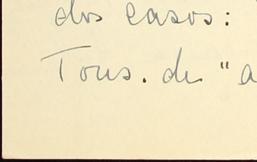 dos casos:
Tous. de "a